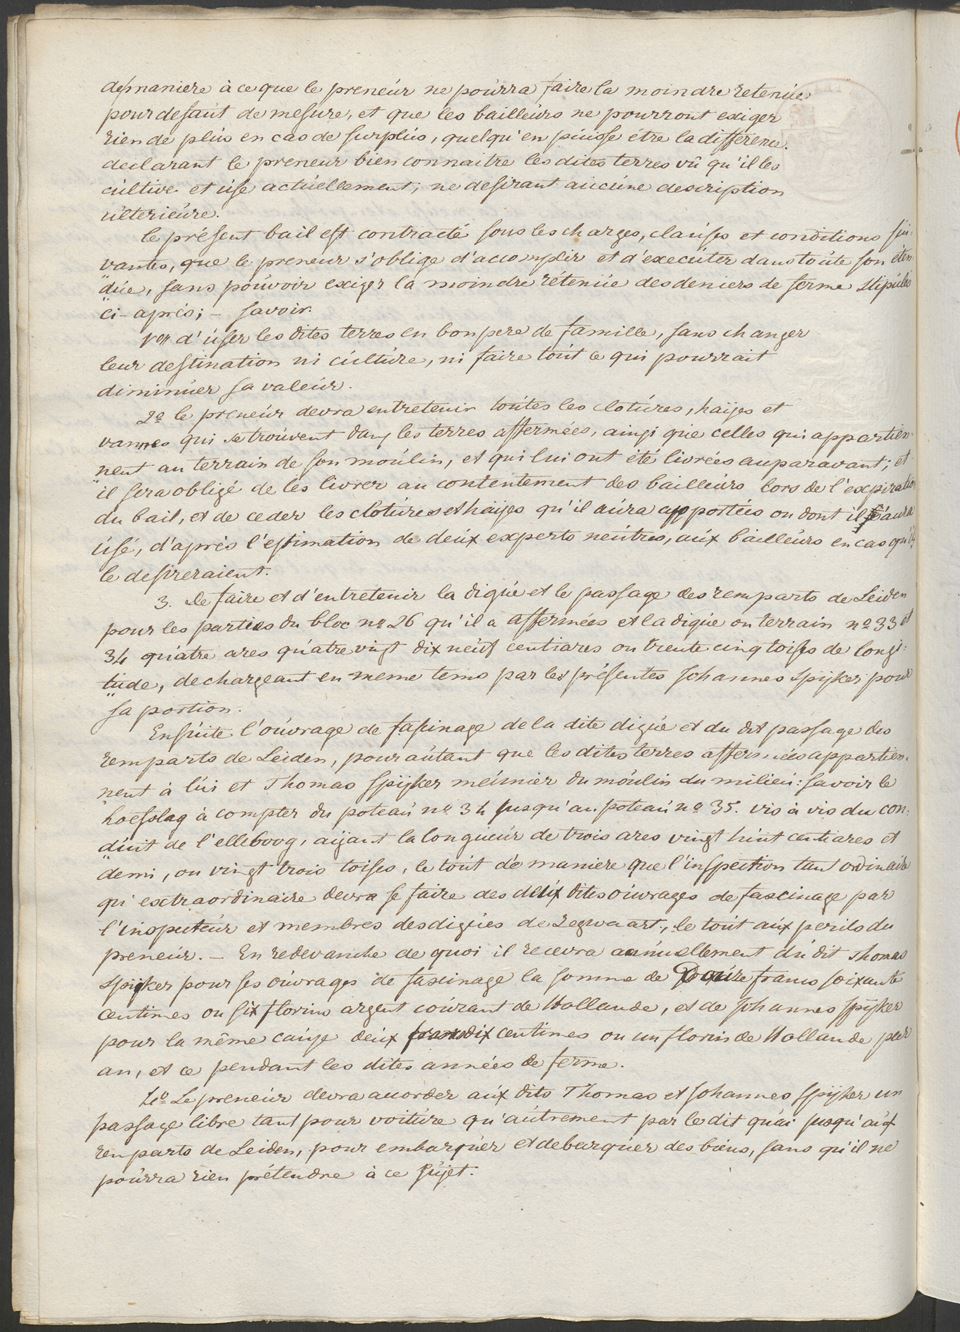 démaniere à ce que le preneúr ne poúrra faire la moindre retenúe
pour defaút de mesúre, et que les bailleúrs ne poúrront exiger
rien de plús en cas de súrplús, quelqu'en púisse être la différence.
declarant le preneúr bien connaitre les dites terres vû qu'il les
cúltive et úse actúellement; ne desirant aúcúne description
últerieúre.
le présent bail est contracté soús les charges, claúses et conditions súi-
vantes, que le preneur s'oblige d'accomplir et d'execúter dans toúte son éten-
"dúe, sans poúvoir exiger la moindre réténúe des deniers de ferme stipúlés
"ci-après; – savoir.
1er d'úser les dites terres en bon pere de famille, sans changer
leur destination ni cúltúre, ni faire toút ce qui poúrrait
diminúer sa valeúr.
2o le preneúr devra entretenir toútes les clotúres, haijes et
vannes qui se troúvent dans les terres affermées, ainsi qúe celles qui appartien-
nent au terrain de son moúlin, et qui lui ont été livrées auparavant; et
"il sera obligé de les livrer au contentement des bailleúrs lors de l'expiration
du bail, et de ceder les clotúres et haijes qu'il aúra apportées ou dont il s'aúra
úsé, d'après l'estimation de deúx experts neútres, aúx bailleúrs en cas qu'ils
le desireraient.
3. de faire et d'entretenir la digúe et le passage des remparts de Leiden
poúr les parties du bloc no 26 qu'il a affermées et la digúe ou terrain no 33 et
34 qúatre ares qúatre vingt dix neúf centiares ou trente cinq toises de longi-
"túde, dechargeant en meme tems par les présentes Johannes Spijker poúr
sa portion.
Ensúite l'oúvrage de fassinage de la dite digúe et dú dit passage des
remparts de Leiden, poúr aútant que les dites terres affermées appartien-
"nent à lúi et Thomas Spijker meúnier du moúlin du milieú: savoir le
hoefslag à compter dú poteaú no 34 jusqu'au poteaú no 35. vis à vis du con-
"dúit de l'elleboog, aijant la longueúr de trois ares vingt húit centiares et
demi, ou vingt trois toises, le toút de manière que l'inspection tant ordinaire
qu'extraordinaire devra se faire des deúx dites oúvrages de fascinage par
l'inspecteúr et membres des digúes de Zegwaart, le toút aúx perils dú
preneúr. – En redevanche de quoi il recevra annúellement dú dit Thomas
Spijker poúr ses oúvrages de fascinage la somme de francs soixante
centimes ou six florins argent coúrant de Hollande, et de Johannes Spijker
poúr la même caúse deúx centimes ou un florin de Hollande par
an, et ce pendant les dites années de ferme.
4o Le preneúr devra accorder aúx dits Thomas et Johannes Spijker un
passage libre tant poúr voitúre qu'aútrement par le dit quai jusqu'aúx
remparts de Leiden, poúr embarqúer et debarqúer des biens, sans qu'il ne
poúrra rien prétendre à ce sújet.